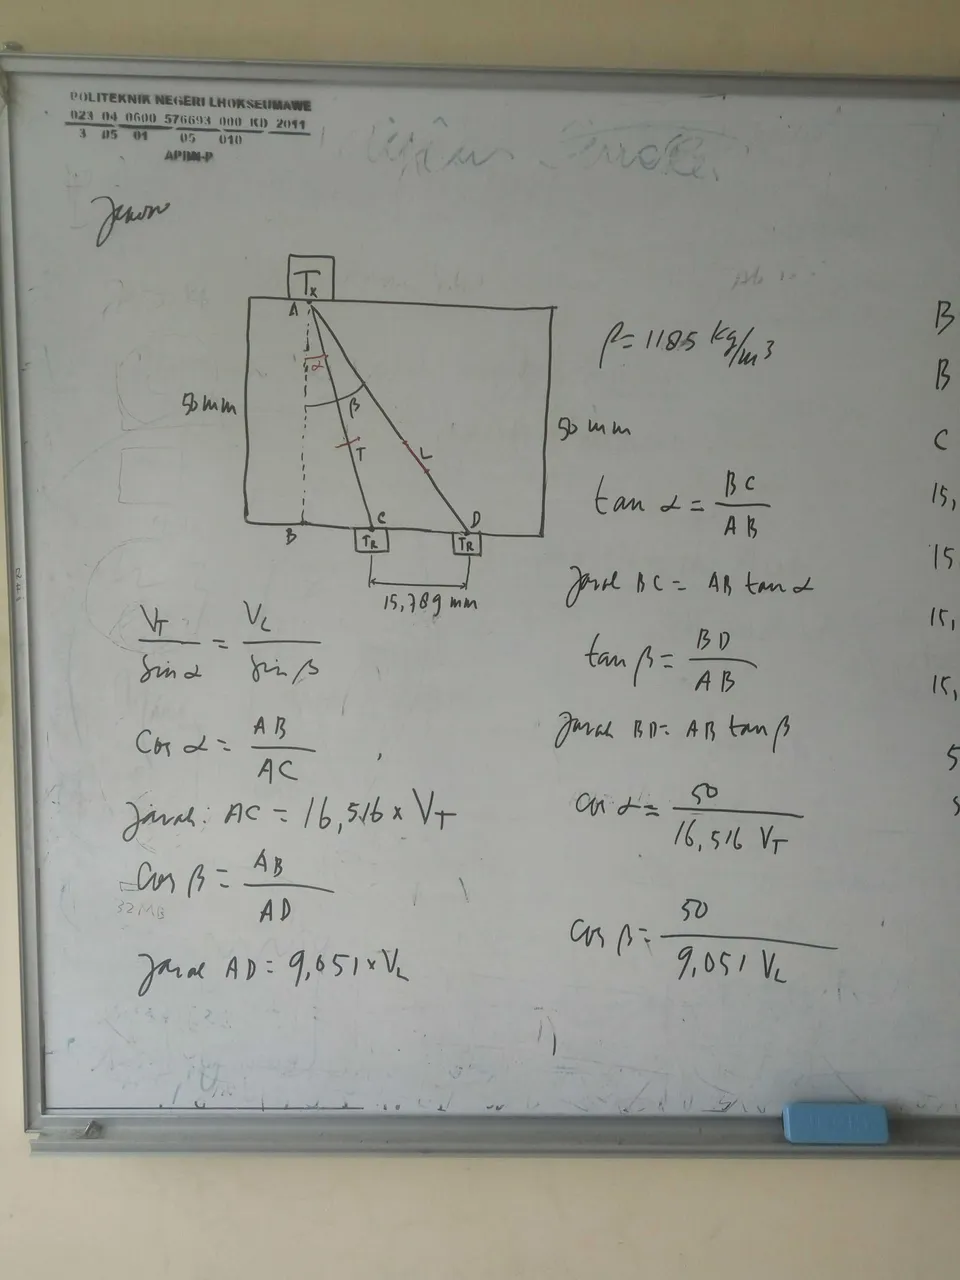 POLITEKNIK NEGERI LHOKSEUMAWE
023 04 0600 576693 000 KD 2011
3 05 01 05 010
APBN-P
TX
A
α
50 mm
β
T
L
50 mm
B
C
D
TR
TR
15,789 mm
ρ = 1185 kg/m3
tan α = BC / AB
Jarak BC = AB tan α
tan β = BD / AB
Jarak BD = AB tan β
cos α = 50 / 16,516 VT
cos β = 50 / 9,051 VL
VT / Sin α = VL / Sin β
Cos α = AB / AC
Jarak: AC = 16,516 x VT
Cos β = AB / AD
32MB
Jarak AD = 9,051 x VL
B
B
C
15,
15
15,
15,
5